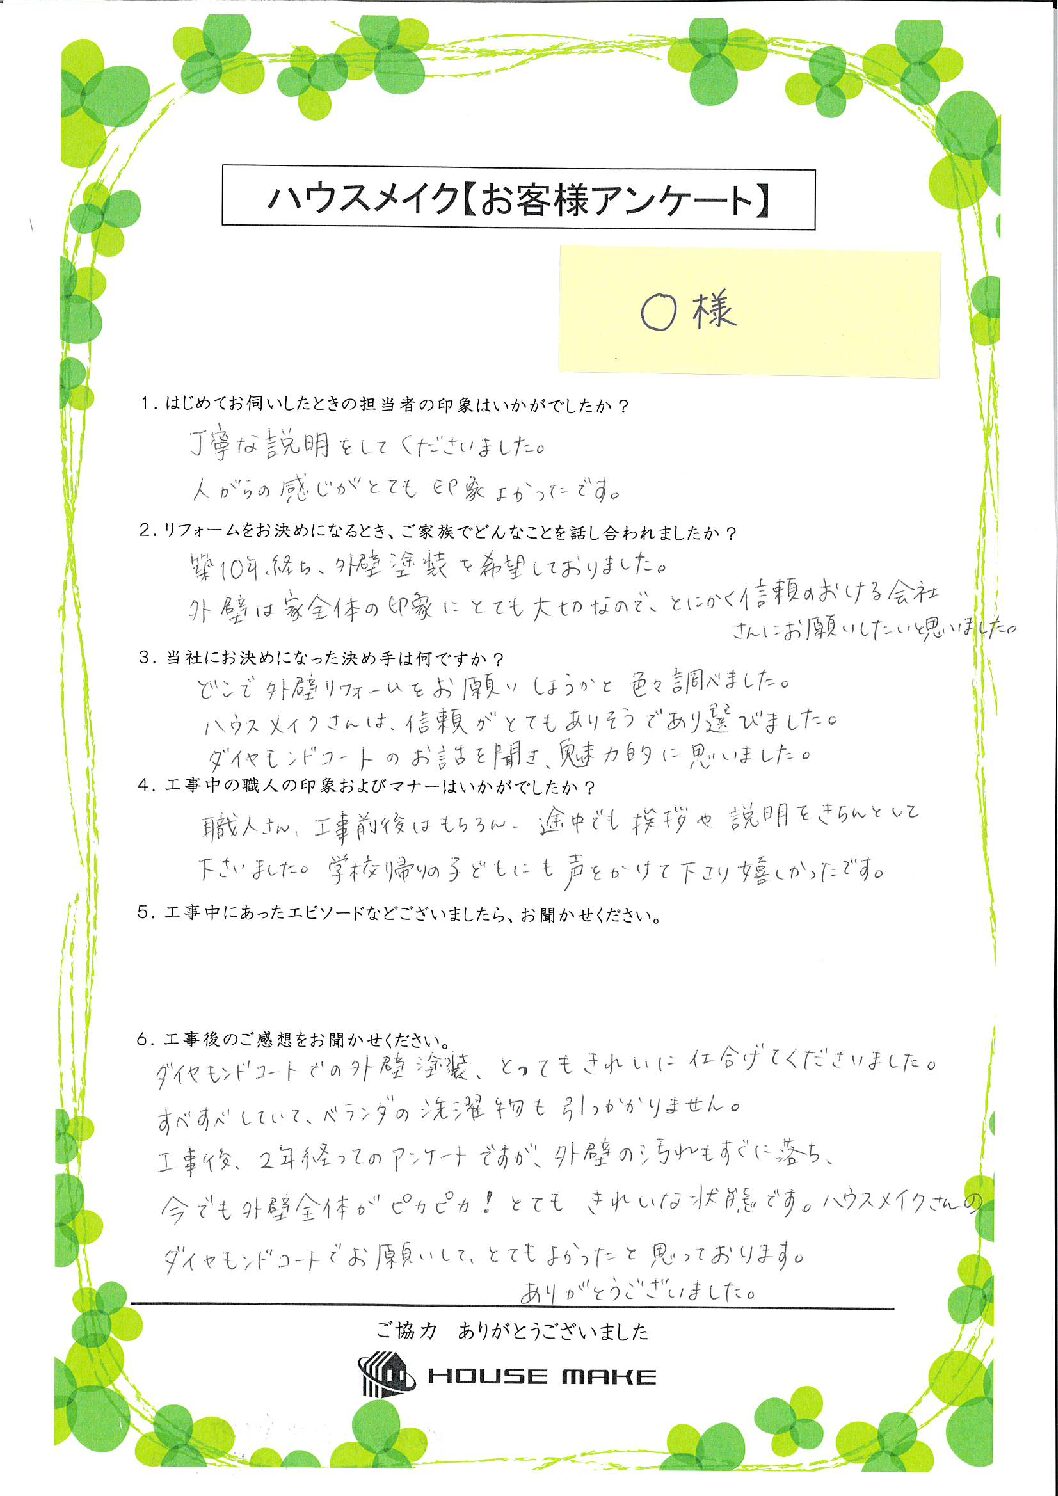 ハウスメイク【お客様アンケート】
〇様
1. はじめてお伺いしたときの担当者の印象はいかがでしたか？
丁寧な説明をしてくださいました。
人がらの感じがとても印象よかったです。
2. リフォームをお決めになるとき、ご家族でどんなことを話し合われましたか？
築10年経ち、外壁塗装を希望しておりました。
外壁は家全体の印象にとても大切なので、とにかく信頼のおける会社
さんにお願いしたいと思いました。
3. 当社にお決めになった決め手は何ですか？
どこで外壁リフォームをお願いしようかと色々調べました。
ハウスメイクさんは、信頼がとてもありそうであり選びました。
ダイヤモンドコートのお話を聞き、魅力的に思いました。
4. 工事中の職人の印象およびマナーはいかがでしたか？
職人さん、工事前後はもちろん、途中でも挨拶や説明をきちんとして
下さいました。学校帰りの子どもにも声をかけて下さり嬉しかったです。
5. 工事中にあったエピソードなどございましたら、お聞かせください。
6. 工事後のご感想をお聞かせください。
ダイヤモンドコートでの外壁塗装、とってもきれいに仕上げてくださいました。
すべすべしていて、ベランダの洗濯物も引っかかりません。
工事後、2年経ってのアンケートですが、外壁の汚れもすぐに落ち、
今でも外壁全体がピカピカ！とてもきれいな状態です。ハウスメイクさんの
ダイヤモンドコートでお願いして、とてもよかったと思っております。
ありがとうございました。
ご協力 ありがとうございました
HOUSE MAKE